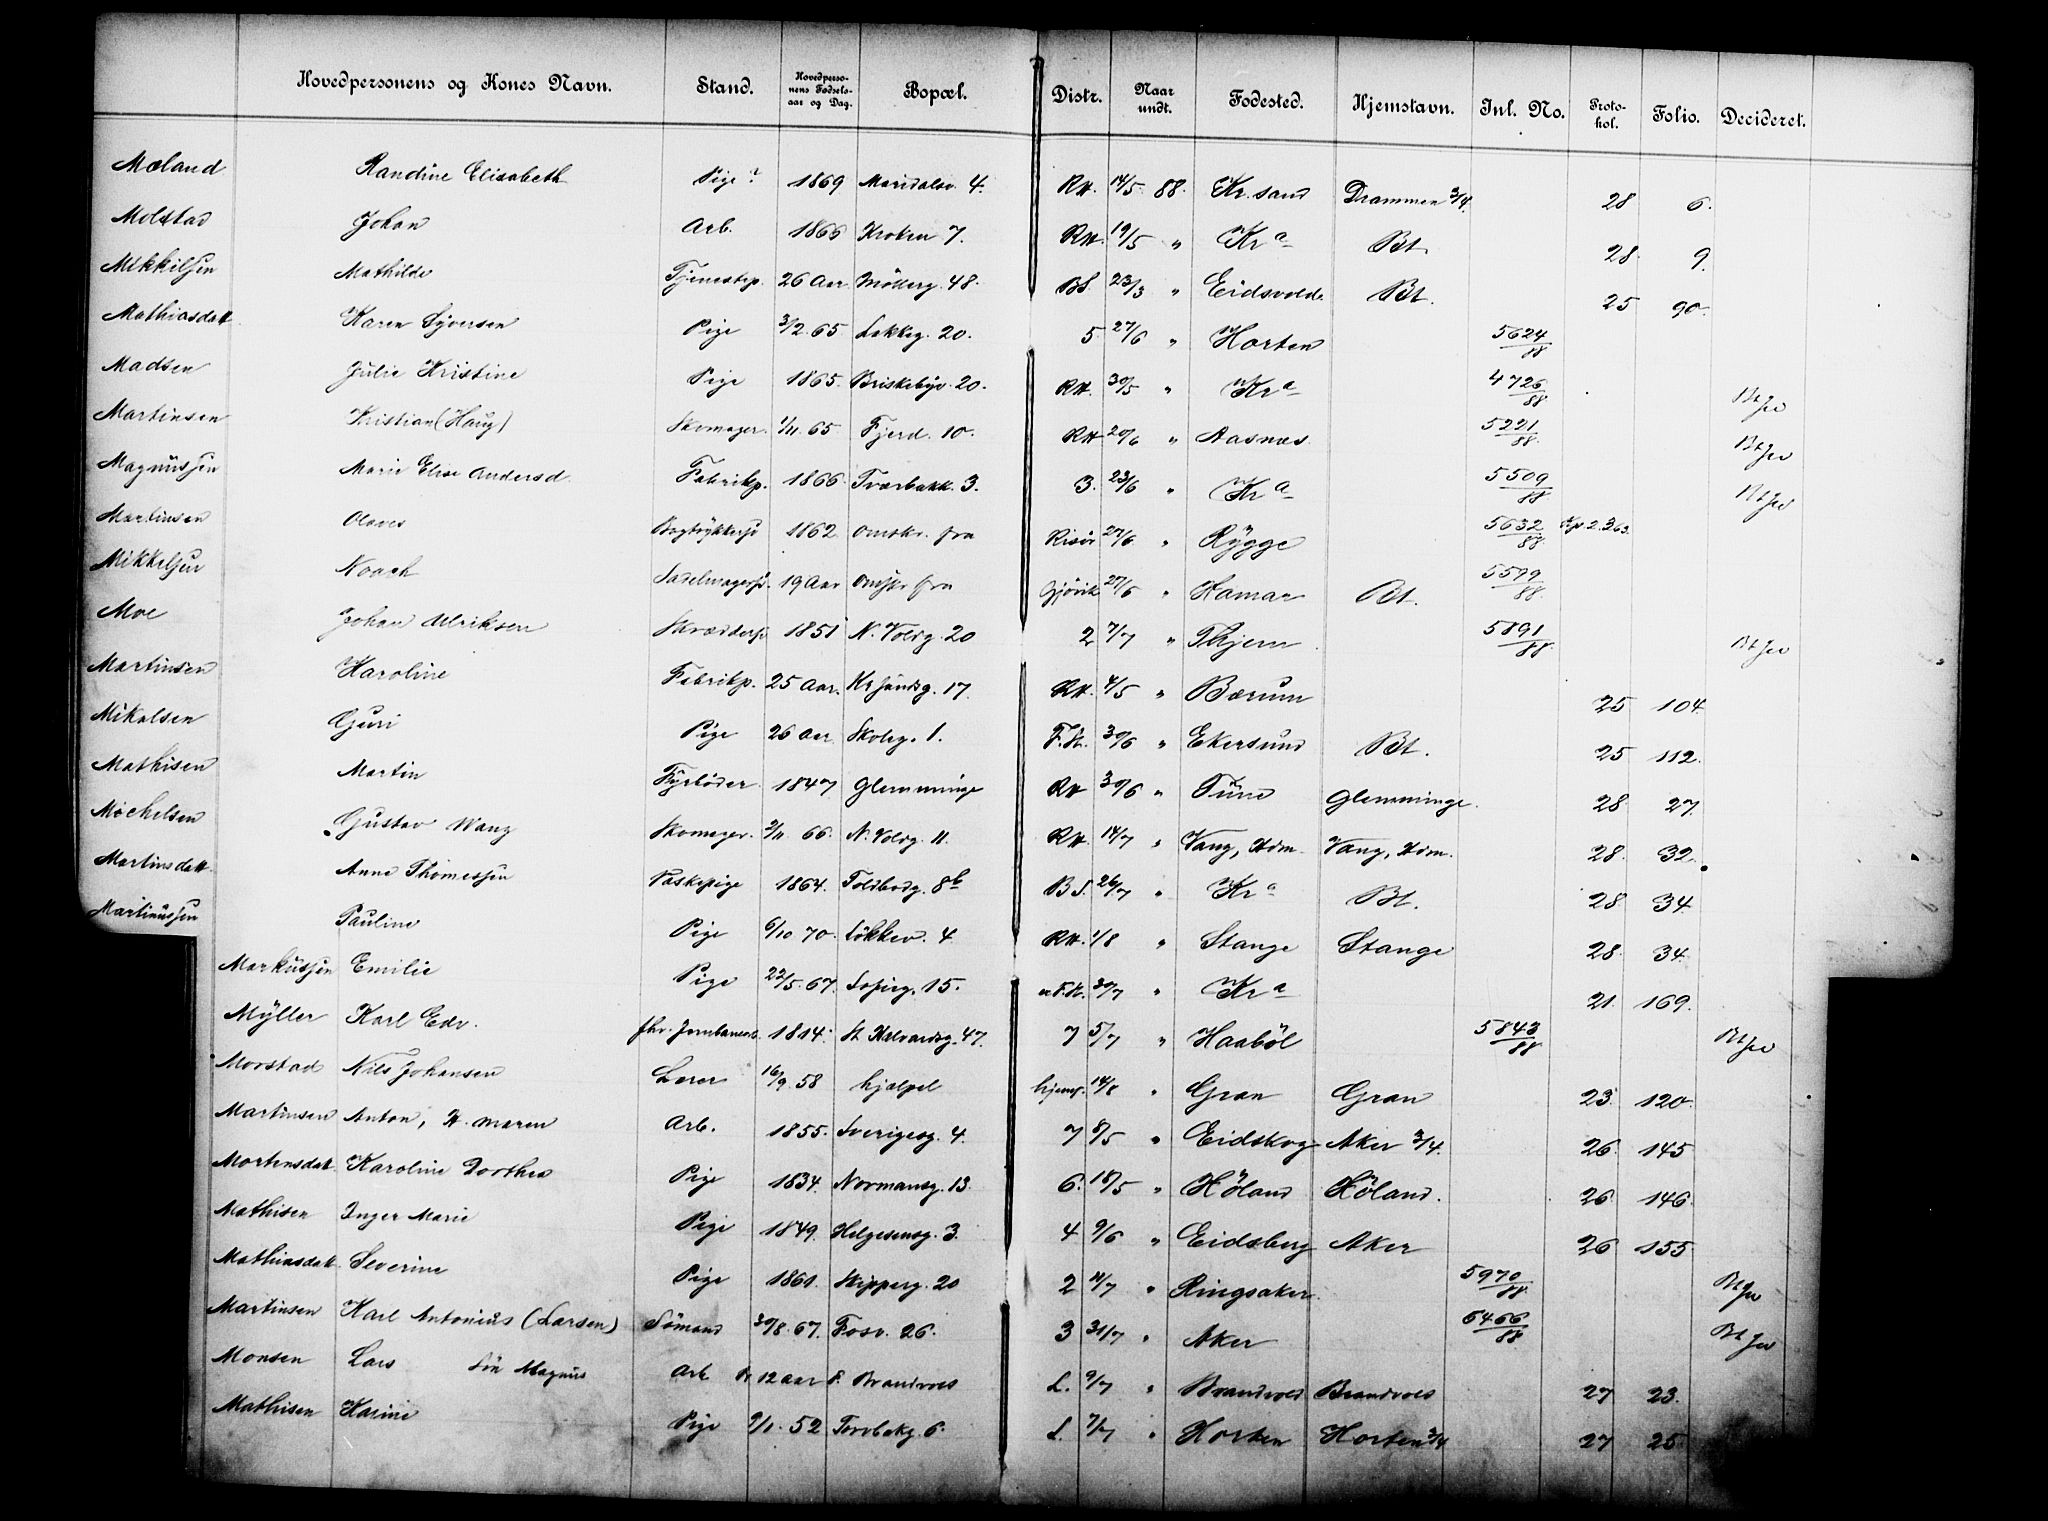 Hovedpersonens og Kones Navn. Stand. Hovedpersonens Fødselsaar og Dag. Bopæl. Distr. Naar undt. Fødested. Hjemstavn. Inl. No. Protokol. Folio. Decideret.
Mæland Randine Elisabeth Pige 1869 Maridalsv. 4. RH. 14/5 88. Kr.sand Drammen 3/4. 28 6.
Molstad Johan Arb. 1866 Kroken 7. RH. 19/5 " Kra Bt. 28. 9.
Mikkilsen Mathilde Tjenestep. 26 Aar Möllerg. 48. BS. 23/3 " Eidsvold. Bt. 25 90.
Mathiasdatt. Karen Syversen Pige 3/2. 65. Lakkeg. 20. 5. 27/6 " Horten 5624/88
Madsen Julie Kristine Pige 1865. Briskebyv. 20. RH. 30/5 " Kra 4726/88
Martinsen Kristian (Haug) Skomager. 1/11. 65. Fjerd. 10. RH 20/6 " Aasnæs 5221/88.
Magnussen Marie Elise Andersd. Fabrikp. 1866. Tværbakk. 3. 3. 23/6 " Kra 5509/88
Martinsen Olaves Bogtrykkersv 1862. Omskr. fra Risör 27/6 " Rygge 5632/88. 2. 363.
Mikkelsen Noach Sadelmagersv. 19 Aar Omskr fra Gjövik 27/6 " Hamar Bt. 5599/88.
Moe Johan Ulriksen Skræddersv 1851 N. Voldg. 20 2 7/7 " Thjem 5891/88.
Martinsen Karoline Fabrikp. 25 Aar. Kr sandsg. 17. RH. 4/5 " Bærum 25 104.
Mikalsen Guri Pige 26 Aar Skoleg. 1. F.K. 30/6 " Ekersund Bt. 25 112.
Mathisen Martin Fyrböder 1847 Glemminge RH 30/6 " Tune Glemminge. 28. 27.
Mechelsen Gustav Wang Skomager. 2/11 66. N. Voldg. 11. RH. 14/7 " Vang, Hdm. Vang, Hdm. 28. 32.
Martinsdatt. Anne Thomessen Vaskepige 1864. Toldbodg. 8b BS. 26/7 " Kra Bt. 28. 34.
Martinussen Pauline Pige 6/10 70. Lökkev. 4. RH. 1/8 " Stange Stange 28. 34.
Markussen Emilie Pige 22/5. 67. Sofieg. 15. F.K. 30/7 " Kra 21. 169.
Myller Karl Edv. fhv. Jernbaneb. 1814. St Halvardsg. 47. 7 5/7 " Haaböl 5843/88
Morstad Nils Johansen Lærer 16/9. 58 hjælpel hjemf. 14/8 " Gran Gran 23. 120.
Martinsen Anton, H. Maren Arb. 1855. Sverigesg. 4. 7 8/5 " Eidskog Aker 3/4. 26. 145
Mortensdat. Karoline Dorthea Pige 1834. Normansg. 13. 6. 18/5 " Höland Höland. 26. 146.
Mathisen Inger Marie Pige 1849. Helgesensg. 3. 4 9/6 " Eidsberg Aker 26 155
Mathiasdatt. Severine Pige 1861. Skipperg. 20 2 11/7 " Ringsaker. 5970/88.
Martinsen Karl Antonius (Larsen) Sömand 30/8. 67. Fosv. 26. 3 31/7 " Aker 6466/88
Monsen Lars Sön Magnus Arb 12 aar Brandvold L. 9/7 " Brandvold Brandvold 27 23.
Mathisen Karine Pige 9/1. 52 Torvbakg. 6. L. 7/7 " Horten Horten 3/4 27 25.